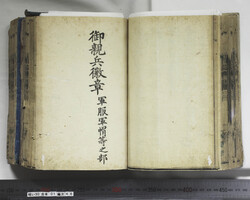 御親兵徽章
軍服軍帽等之部